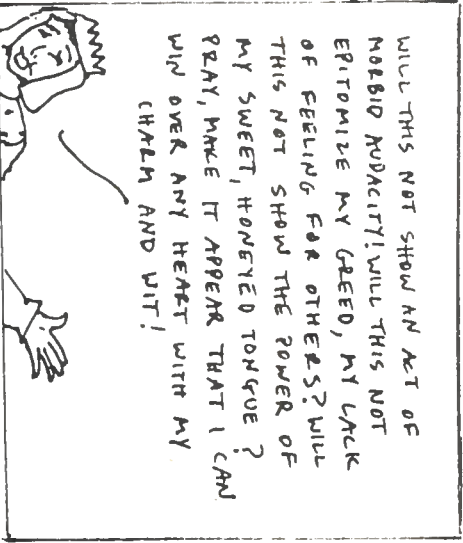 WILL THIS NOT SHOW AN ACT OF
MORBID AUDACITY! WILL THIS NOT
EPITOMIZE MY GREED, MY LACK
OF FEELING FOR OTHERS? WILL
THIS NOT SHOW THE POWER OF
MY SWEET, HONEYED TONGUE?
PRAY, MAKE IT APPEAR THAT I CAN
WIN OVER ANY HEART WITH MY
CHARM AND WIT!